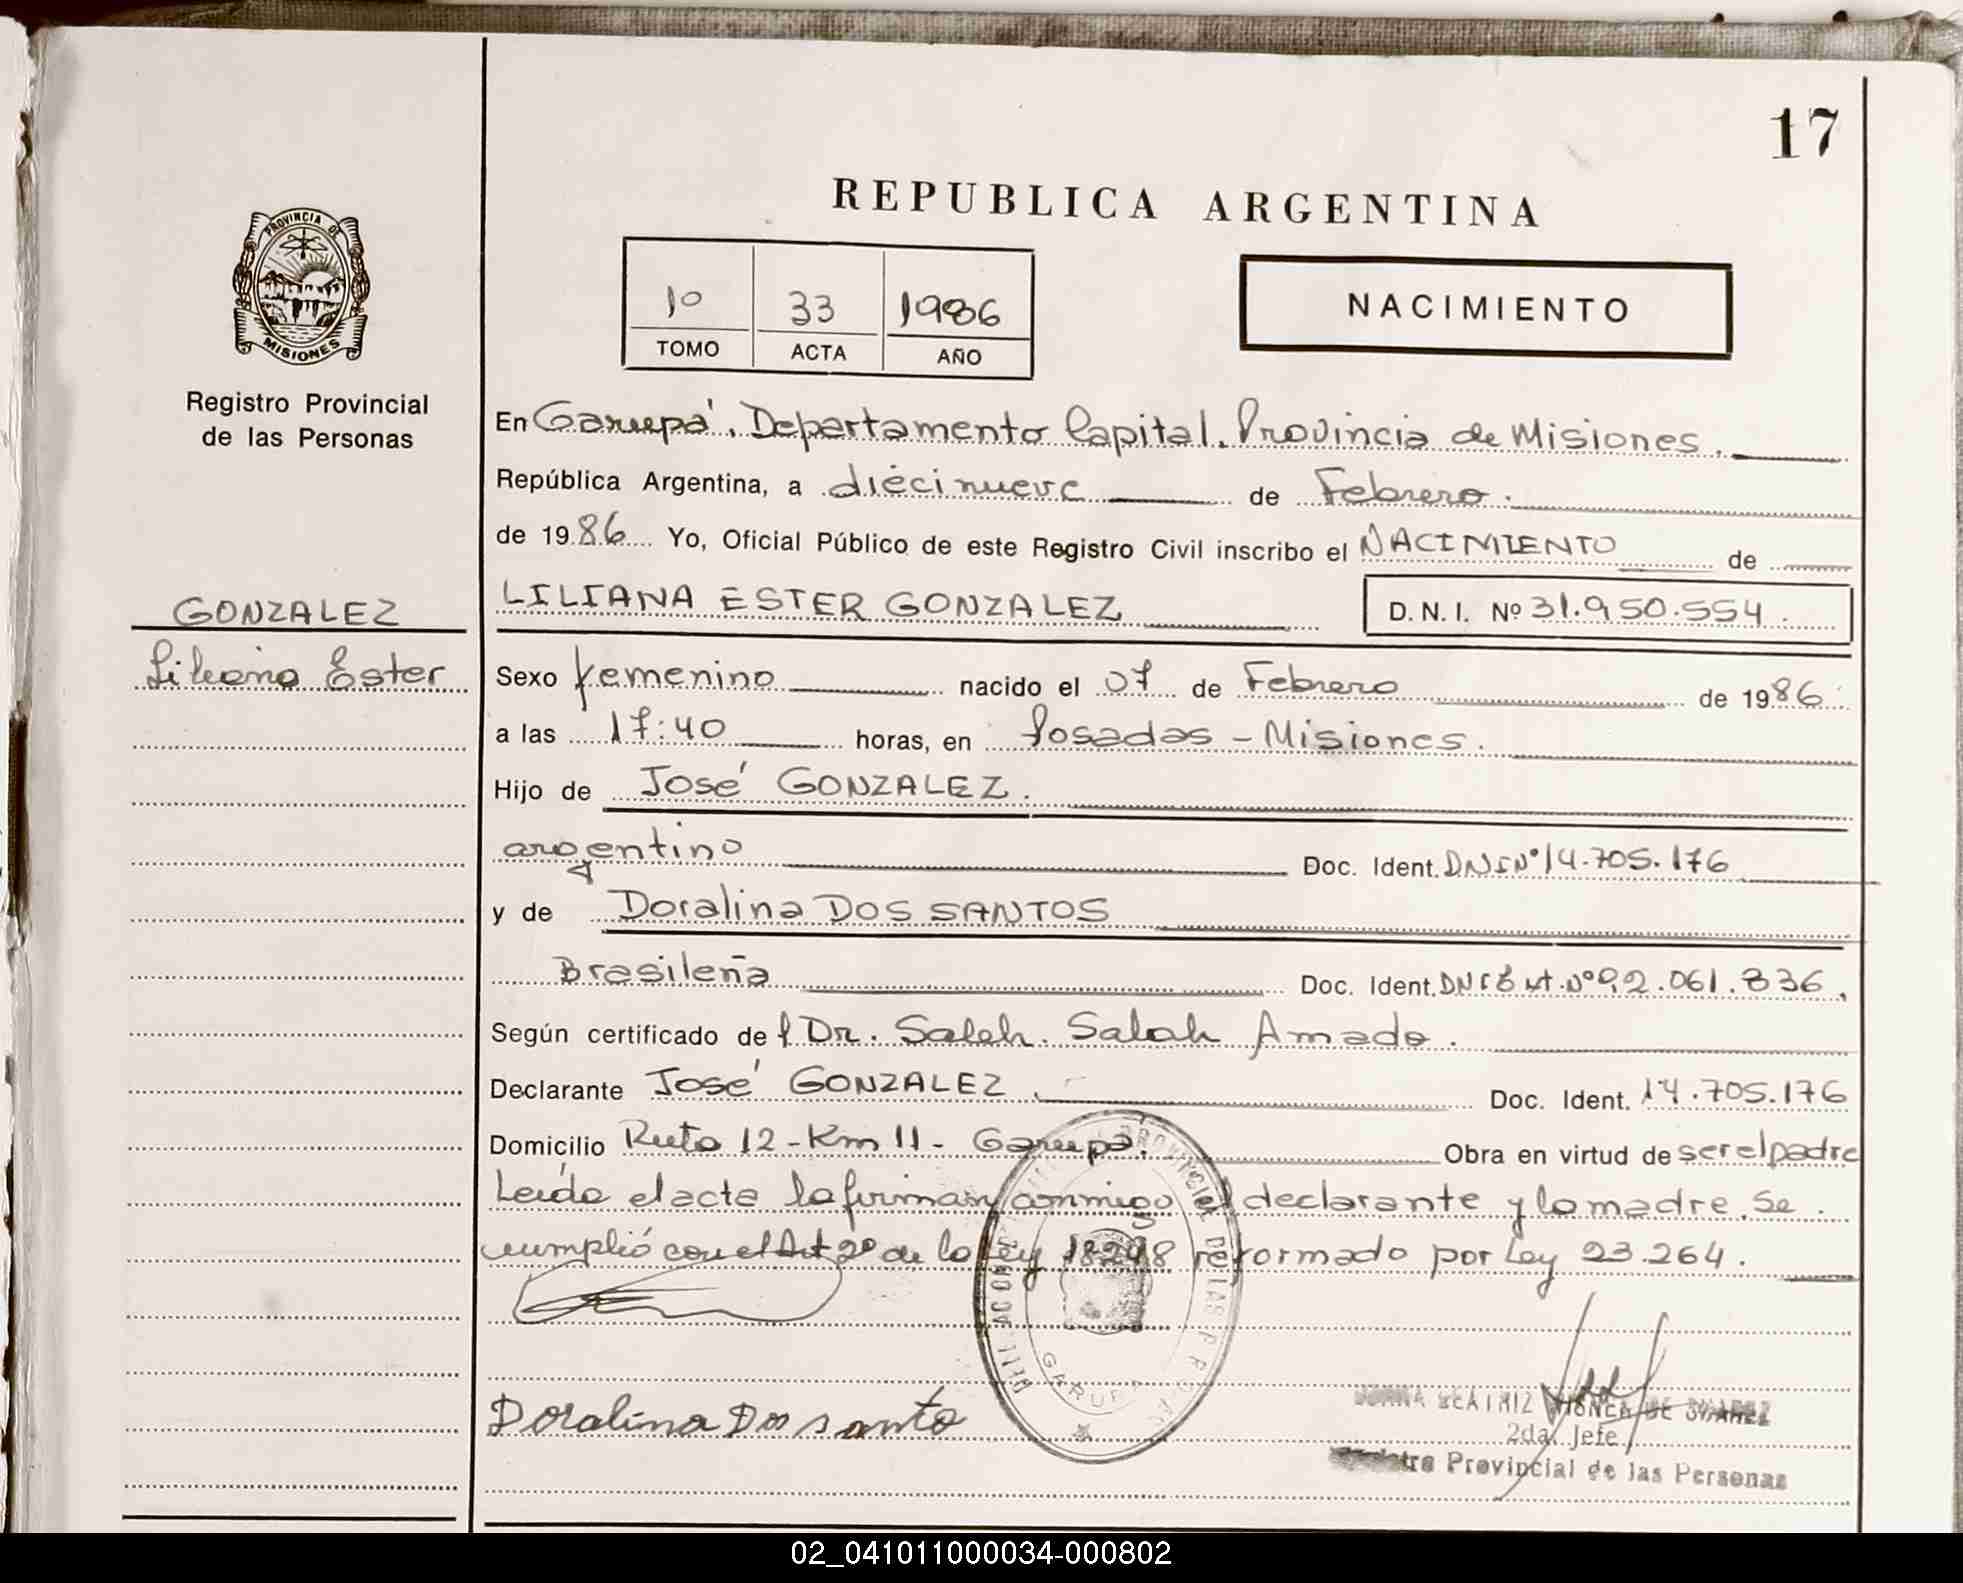 17
REPUBLICA ARGENTINA
PROVINCIA DE
MISIONES
Registro Provincial
de las Personas
1º 33 1986
TOMO ACTA AÑO
NACIMIENTO
En Garupá, Departamento Capital, Provincia de Misiones,
República Argentina, a diecinueve de Febrero.
de 1986 Yo, Oficial Público de este Registro Civil inscribo el NACIMIENTO de
GONZALEZ
LILIANA ESTER GONZALEZ D.N.I. Nº 31.950.554.
Liliana Ester
Sexo Femenino nacido el 07 de Febrero de 1986.
a las 17:40 horas, en Posadas - Misiones.
Hijo de José GONZALEZ.
argentino Doc. Ident. DNI Nº 14.705.176
y de Doralina DOS SANTOS
Brasileña Doc. Ident. Nº 92.061.836.
Según certificado del Dr. Saleh. Salah Amado.
Declarante José GONZALEZ. Doc. Ident. 14.705.176
Domicilio Ruta 12 - Km 11 - Garupá. Obra en virtud de ser el padre
Leída el acta la firman conmigo el declarante y la madre. Se
cumplió con el Art 2º de la Ley 18248 reformado por Ley 23.264.
PROVINCIAL DE LAS PERSONAS
GARUPA
Doralina Dos santo
BEATRIZ DE
2da. Jefe
Registro Provincial de las Personas
02_041011000034-000802